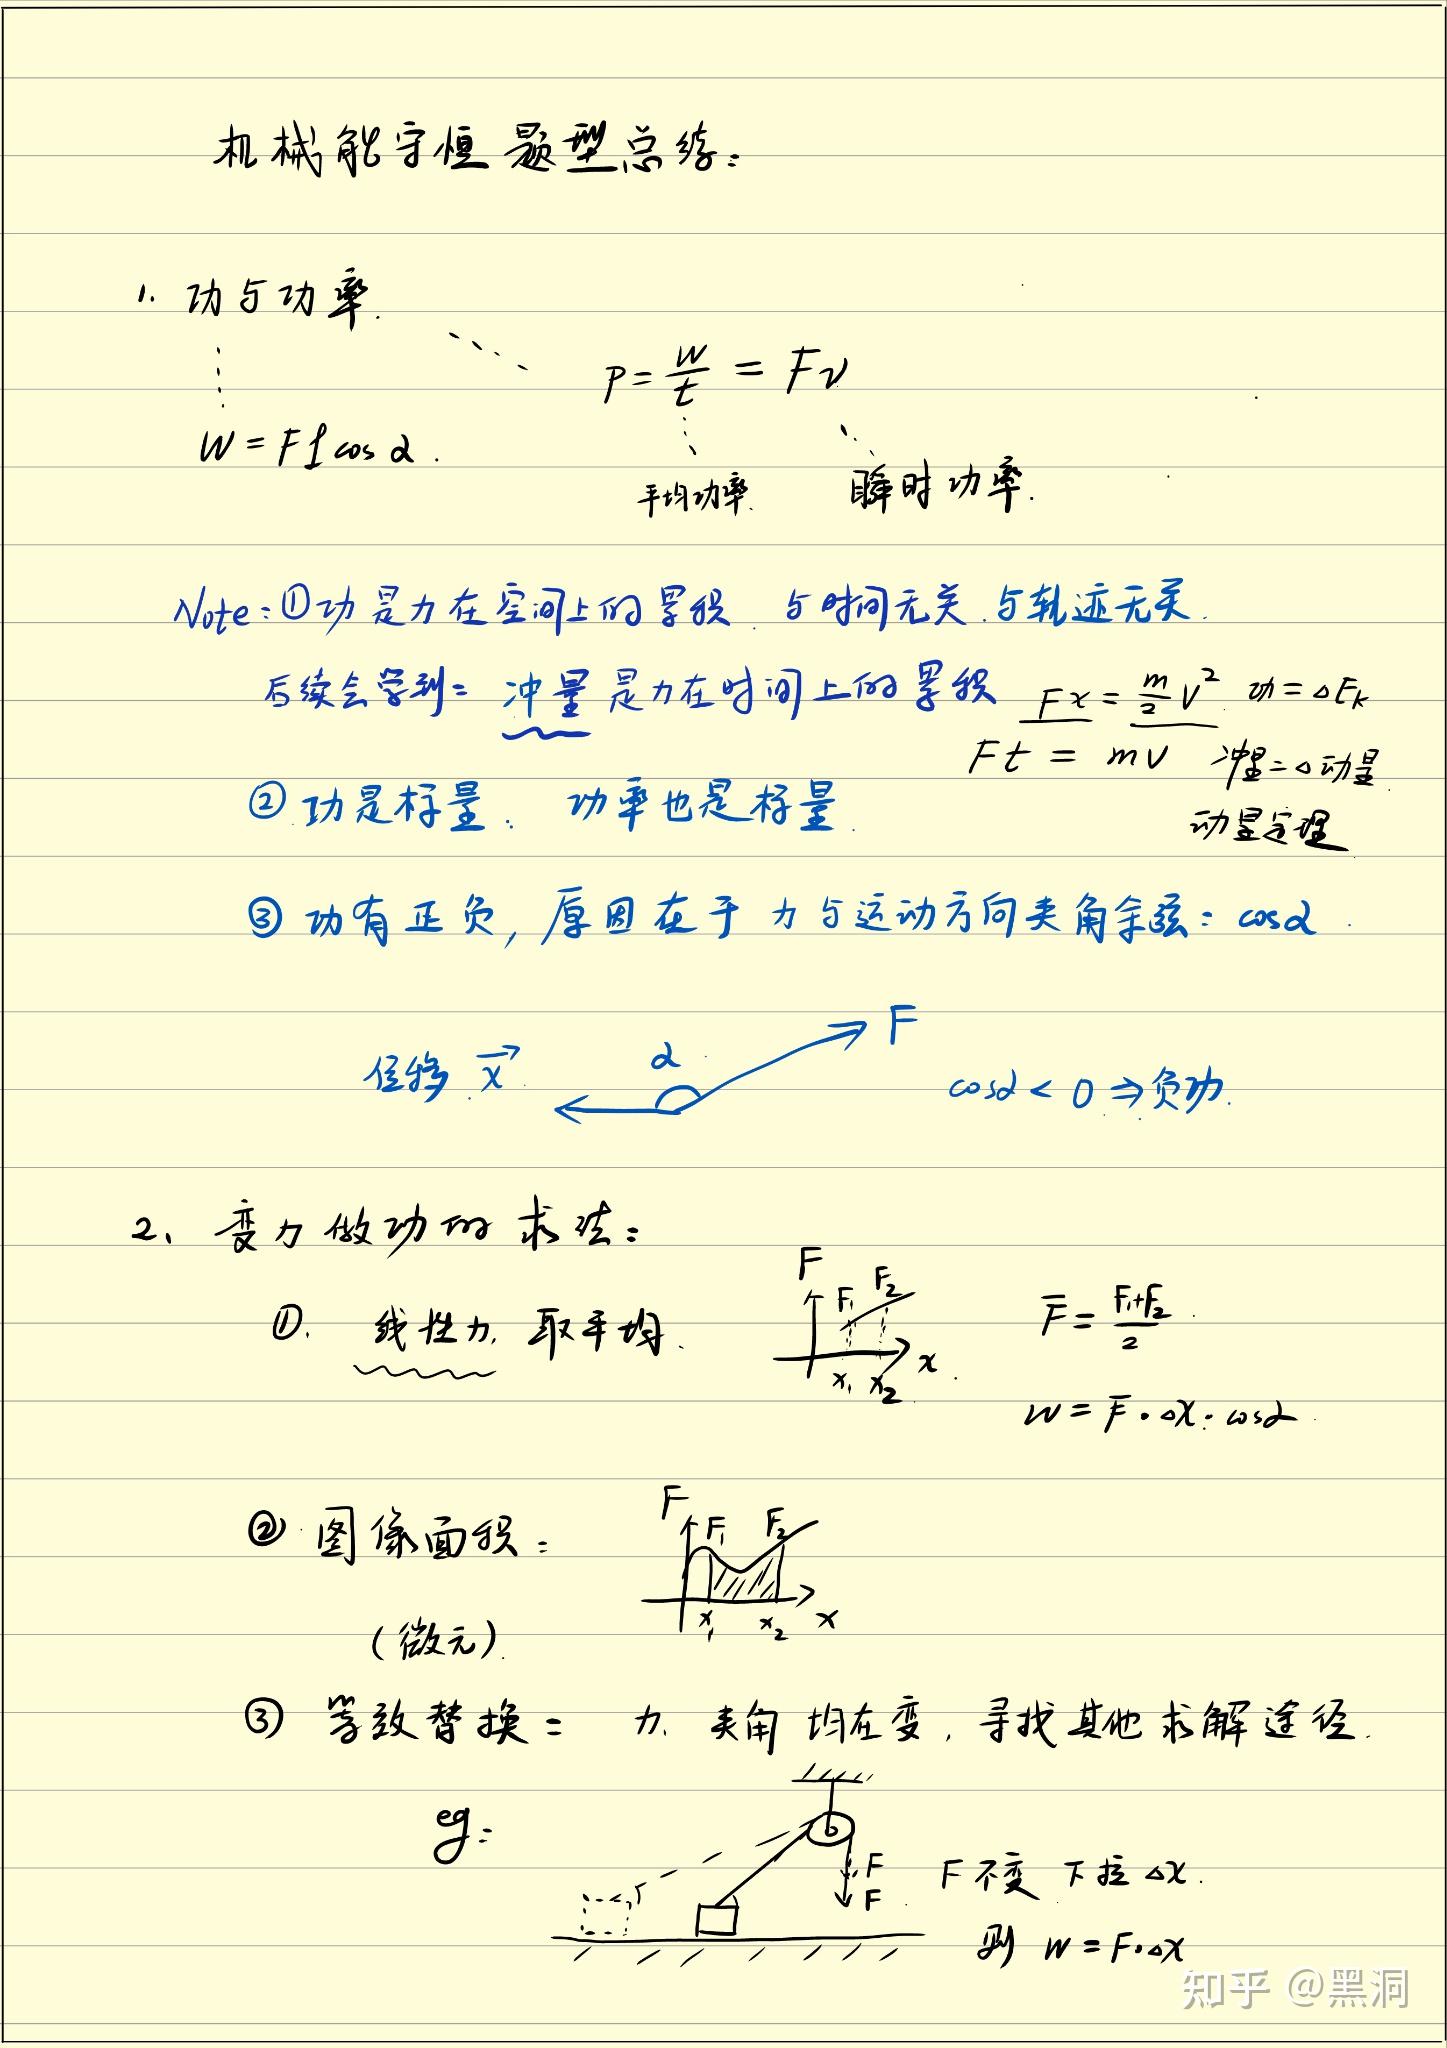 机械能守恒题型总结：
1. 功与功率.
P = W/t = Fv
W = Fl cos α.
平均功率. 瞬时功率.
Note: ①功是力在空间上的累积. 与时间无关. 与轨迹无关.
后续会学到: 冲量是力在时间上的累积
Fx = m/2 V² 功=ΔEk
Ft = mv 冲量=Δ动量
动量定理
② 功是标量. 功率也是标量.
③ 功有正负, 原因在于力与运动方向夹角余弦: cosα.
F
位移 x⃗ α
cosα < 0 ⇒ 负功.
2. 变力做功的求法:
①. 线性力. 取平均.
F F₁ F₂
x₁ x₂ x
F̄ = (F₁+F₂)/2
W = F̄·Δx·cosα
② 图像面积:
(微元).
F F₁ F₂
x₁ x₂ x
③ 等效替换: 力. 夹角均在变, 寻找其他求解途径.
eg:
F
F
F不变 下拉 Δx.
则 W = F·Δx
知乎 @黑洞